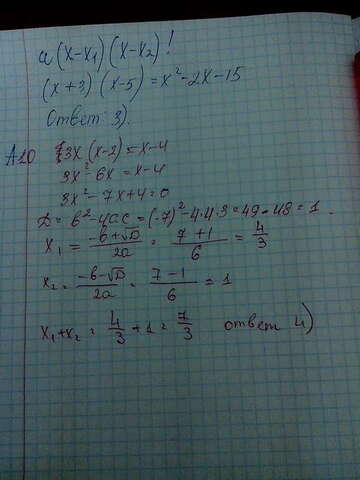 a(x-x₁)(x-x₂)!
(x+3)(x-5)=x²-2x-15
Ответ 3).
A10 3x(x-2)=x-4
3x²-6x=x-4
3x²-7x+4=0
D=b²-4ac=(-7)²-4·4·3=49-48=1.
x₁=(-b+√D)/2a=(7+1)/6=4/3
x₂=(-b-√D)/2a=(7-1)/6=1
x₁+x₂=4/3+1=7/3 ответ 4)